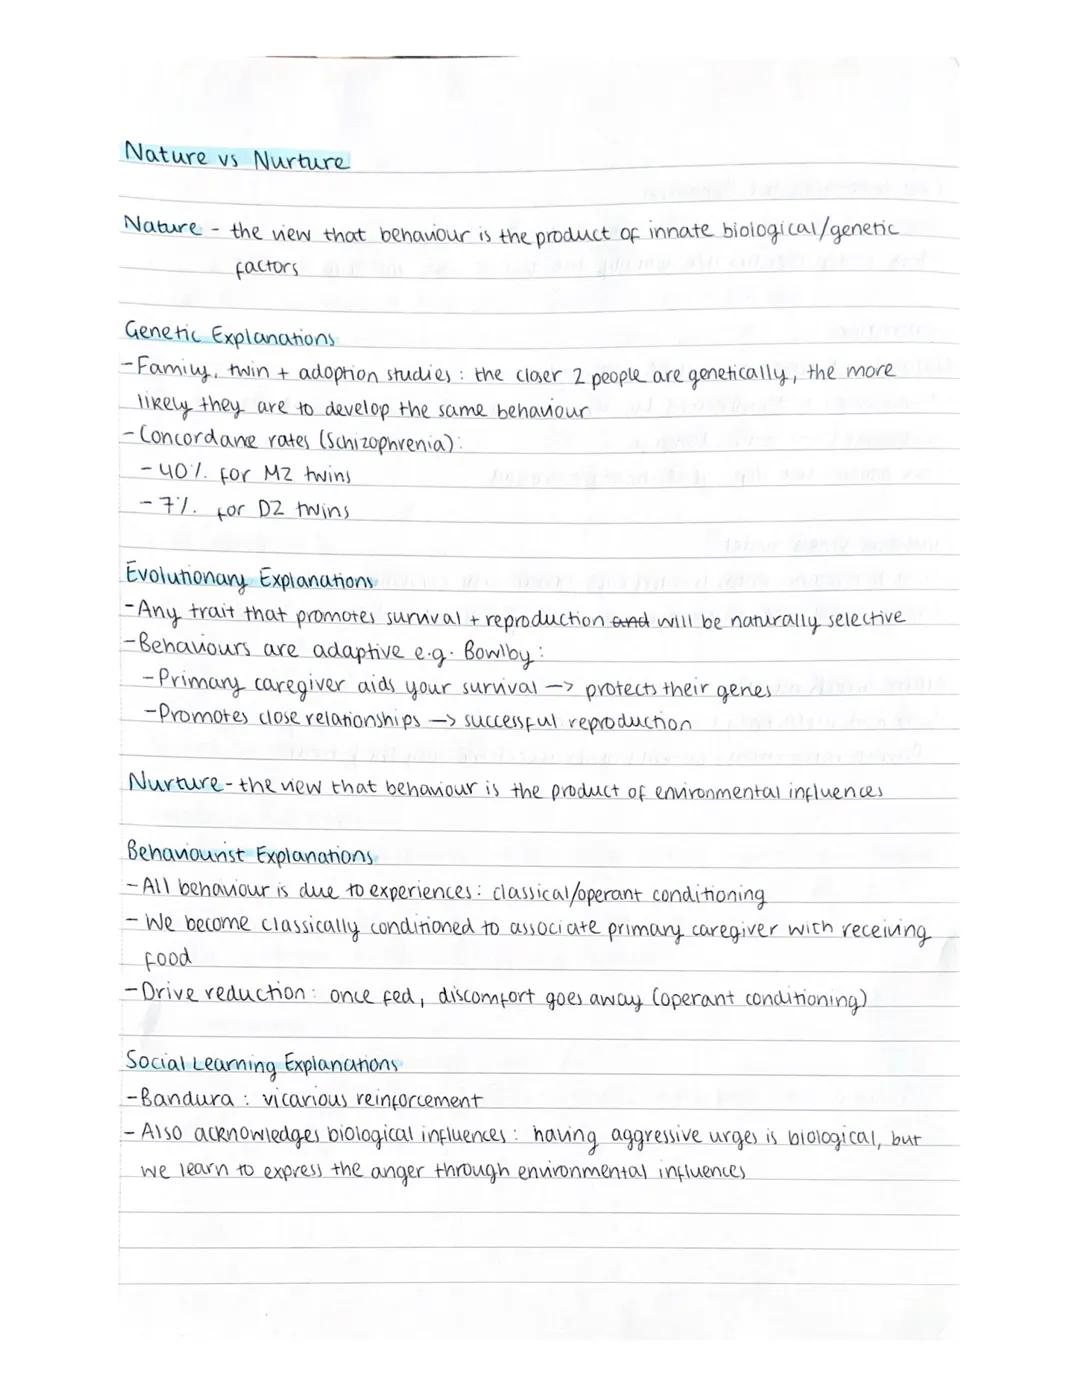 Nature vs Nurture
Nature - the view that behaviour is the product of innate biological/genetic
factors
Genetic Explanations
- Family, twin + adoption studies : the closer 2 people are genetically, the more
likely they are to develop the same behaviour
- Concordane rates (Schizophrenia):
- 40% for MZ twins
- 7% for DZ twins
Evolutionary Explanations
- Any trait that promotes survival + reproduction and will be naturally selective
- Behaviours are adaptive e.g. Bowlby :
- Primary caregiver aids your survival -> protects their genes
- Promotes close relationships -> successful reproduction
Nurture - the view that behaviour is the product of environmental influences
Behaviourist Explanations
- All behaviour is due to experiences : classical/operant conditioning
- We become classically conditioned to associate primary caregiver with receiving
food
- Drive reduction : once fed, discomfort goes away (operant conditioning)
Social Learning Explanations
- Bandura : vicarious reinforcement
- Also acknowledges biological influences : having aggressive urges is biological, but
we learn to express the anger through environmental influences